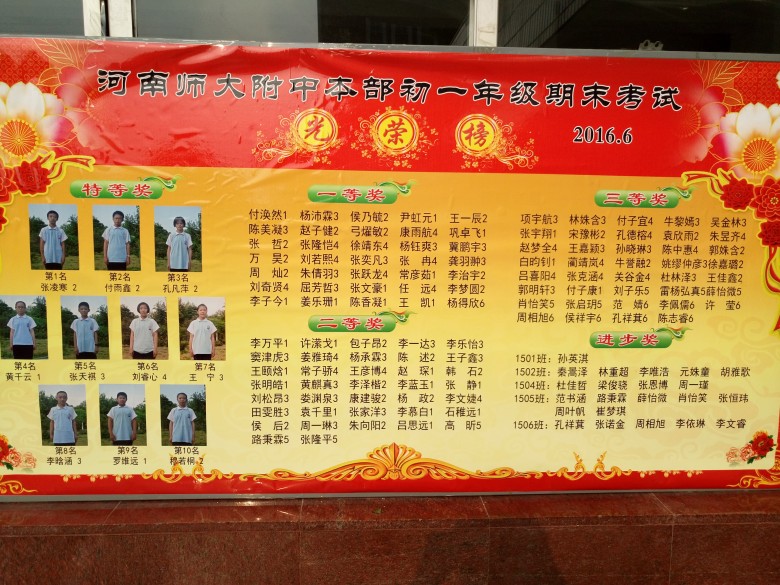 河南师大附中本部初一年级期末考试
光荣榜 2016.6
特等奖
第1名 第2名 第3名
张凌寒 2 付雨鑫 2 孔凡萍 2
第4名 第5名 第6名 第7名
黄千云 1 张天祺 3 刘睿心 4 王宁 3
第8名 第9名 第10名
李晗涵 3 罗维远 1 穆若桐 2
一等奖
付涣然1 杨沛霖3 侯乃毓2 尹虹元1 王一辰2
陈美凝3 赵子健2 弓耀敏2 康雨航4 巩卓飞1
张哲2 张隆恺4 徐靖东4 杨钰爽3 冀鹏宇3
万昊2 刘若熙4 张奕凡3 张冉4 龚羽翀3
周灿2 朱倩羽3 张跃龙4 常彦茹1 李治宇2
刘奇贤4 屈芳哲3 张文豪1 任远4 李梦圆2
李子今1 姜乐珊1 陈香凝1 王凯1 杨得欣6
二等奖
李万平1 许潆戈1 包子昂2 李一达3 李乐怡3
窦津虎3 姜雅琦4 杨承霖3 陈述2 王子鑫3
王颐焓1 常子骄4 王彦博4 赵琛1 韩石2
张明皓1 黄麒真3 李泽楷2 李蓝玉1 张静1
刘松昂4 娄渊泉3 康建骏2 杨政2 李文婕4
田雯胜3 袁千里1 张家洋3 李慕白1 石稚远1
侯后2 周一琳3 朱向阳2 吕思远1 高昕5
路秉霖5 张隆平5
三等奖
项宇航3 林姝含3 付子宜4 牛黎嫣3 吴金林3
张宇翔1 宋豫彬2 孔德榕4 袁欣雨2 朱昱齐4
赵梦全4 王嘉颖3 孙晓琳3 陈中惠4 郭姝含2
白昀钊1 蔺靖岚4 牛誉融2 姚缪仲彦3 徐嘉璐2
吕喜阳4 张克涵4 关谷金4 杜林泽3 王佳鑫2
郭明轩3 付子康1 刘子乐5 雷杨弘真5 薛怡微5
肖怡笑5 张启玥5 范婧6 李佩儒6 许莹6
周相旭6 侯祥宇6 孔祥萁6 陈志睿6
进步奖
1501班：孙英淇
1502班：秦漯泽 林重超 李唯浩 元姝童 胡雅歌
1504班：杜佳哲 梁俊骁 张恩博 周一瑾
1505班：范书涵 路秉霖 薛怡微 肖怡笑 张恒玮
周叶帆 崔梦琪
1506班：孔祥萁 张诺金 周相旭 李依琳 李文睿